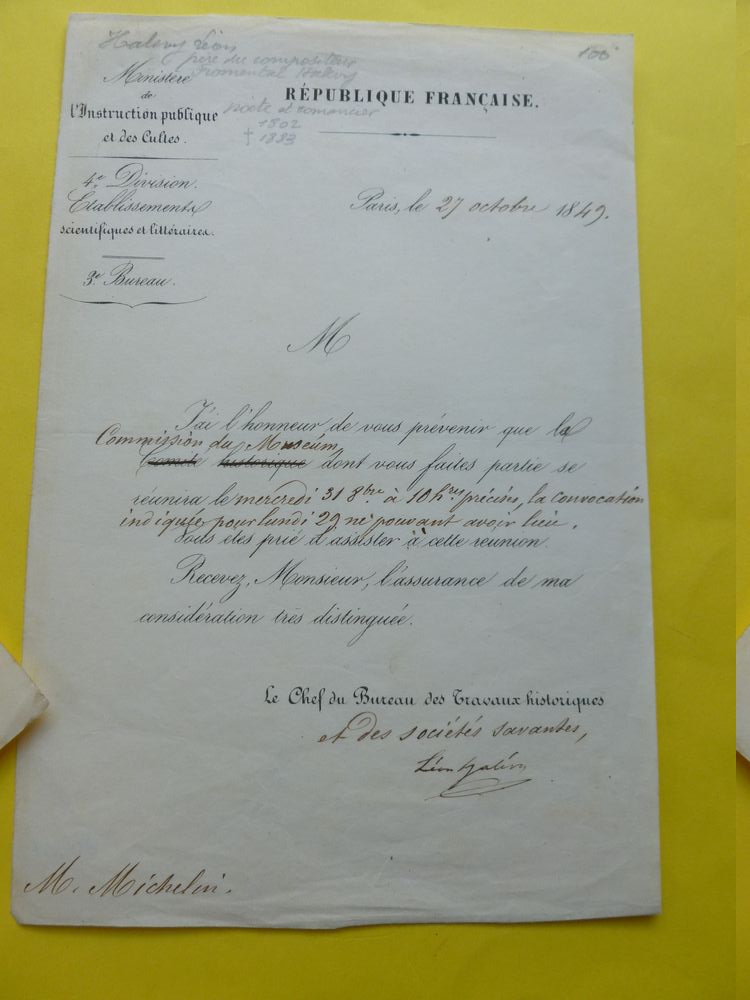 Halevy Léon
100
( frère du compositeur
Fromental Halevy
Ministère
de
l'Instruction publique
et des Cultes.
RÉPUBLIQUE FRANÇAISE.
poète et romancier
1802
† 1883
4e. Division.
Etablissements
scientifiques et littéraires.
3e. Bureau.
Paris, le 27 octobre 1849.
M
J'ai l'honneur de vous prévenir que la
Commission du Muséum
Comité historique dont vous faites partie se
réunira le mercredi 31 8bre à 10 hres précises, la convocation
indiquée pour lundi 29 ne pouvant avoir lieu.
Vous êtes prié d'assister à cette réunion.
Recevez, Monsieur, l'assurance de ma
considération très distinguée.
Le Chef du Bureau des Travaux historiques
et des sociétés savantes,
Léon Halévy
M. Michelin.